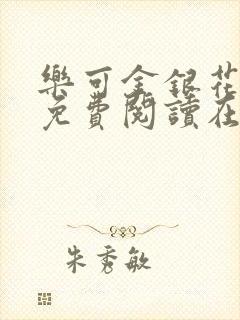 樂可金銀花
免費閱讀在
朱秀敏